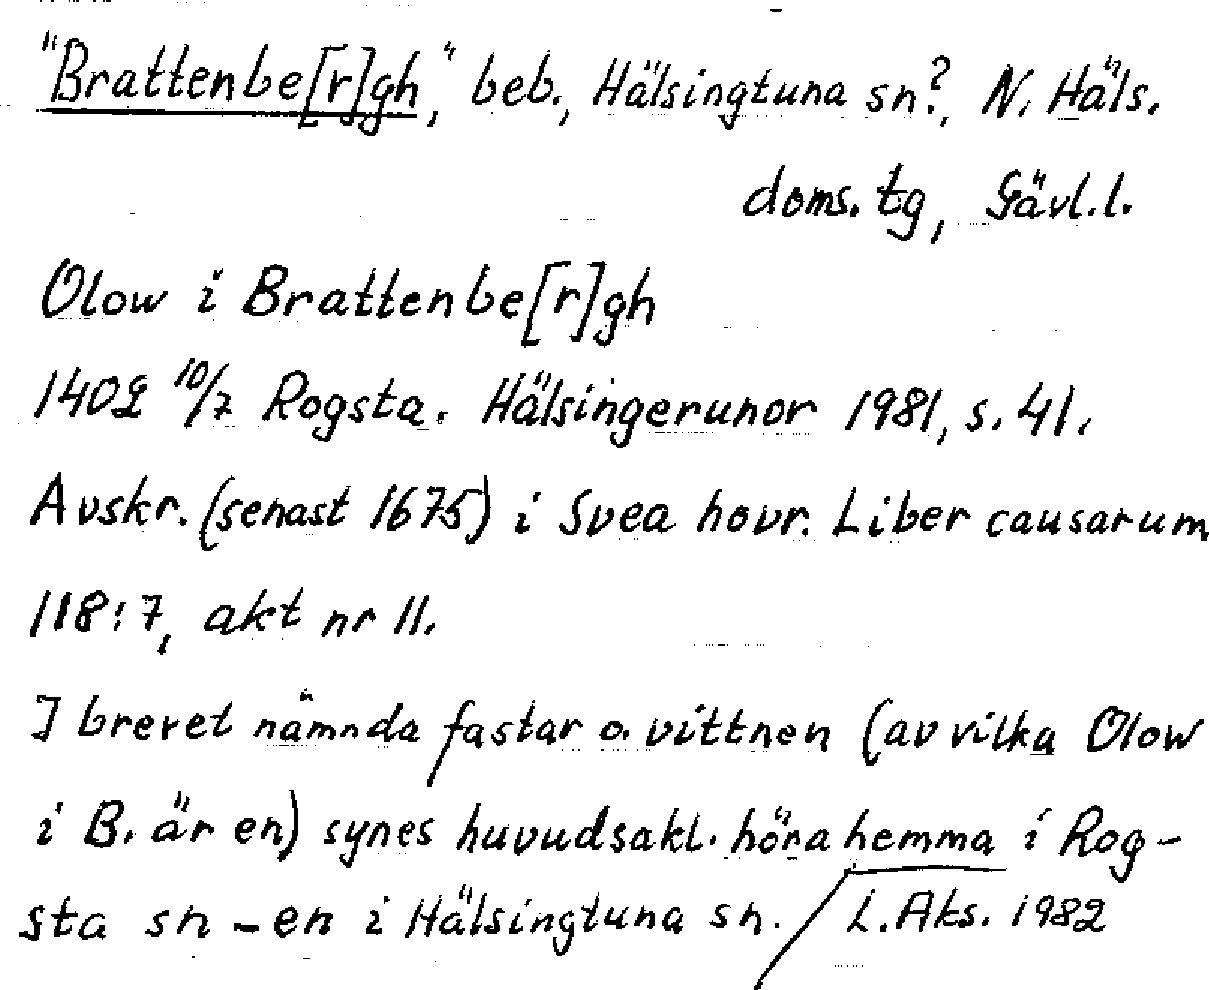 "Brattenbe[r]gh," beb., Hälsingtuna sn?, N. Häls.
doms. tg, Gävl. l.
Olow i Brattenbe[r]gh
1402 10/7 Rogsta. Hälsingerunor 1981, s. 41.
Avskr. (senast 1675) i Svea hovr. Liber causarum
118:7, akt nr 11.
I brevet nämnda fastar o. vittnen (av vilka Olow
i B. är en) synes huvudsakl. höra hemma i Rog-
sta sn - en i Hälsingtuna sn. / L. Aks. 1982